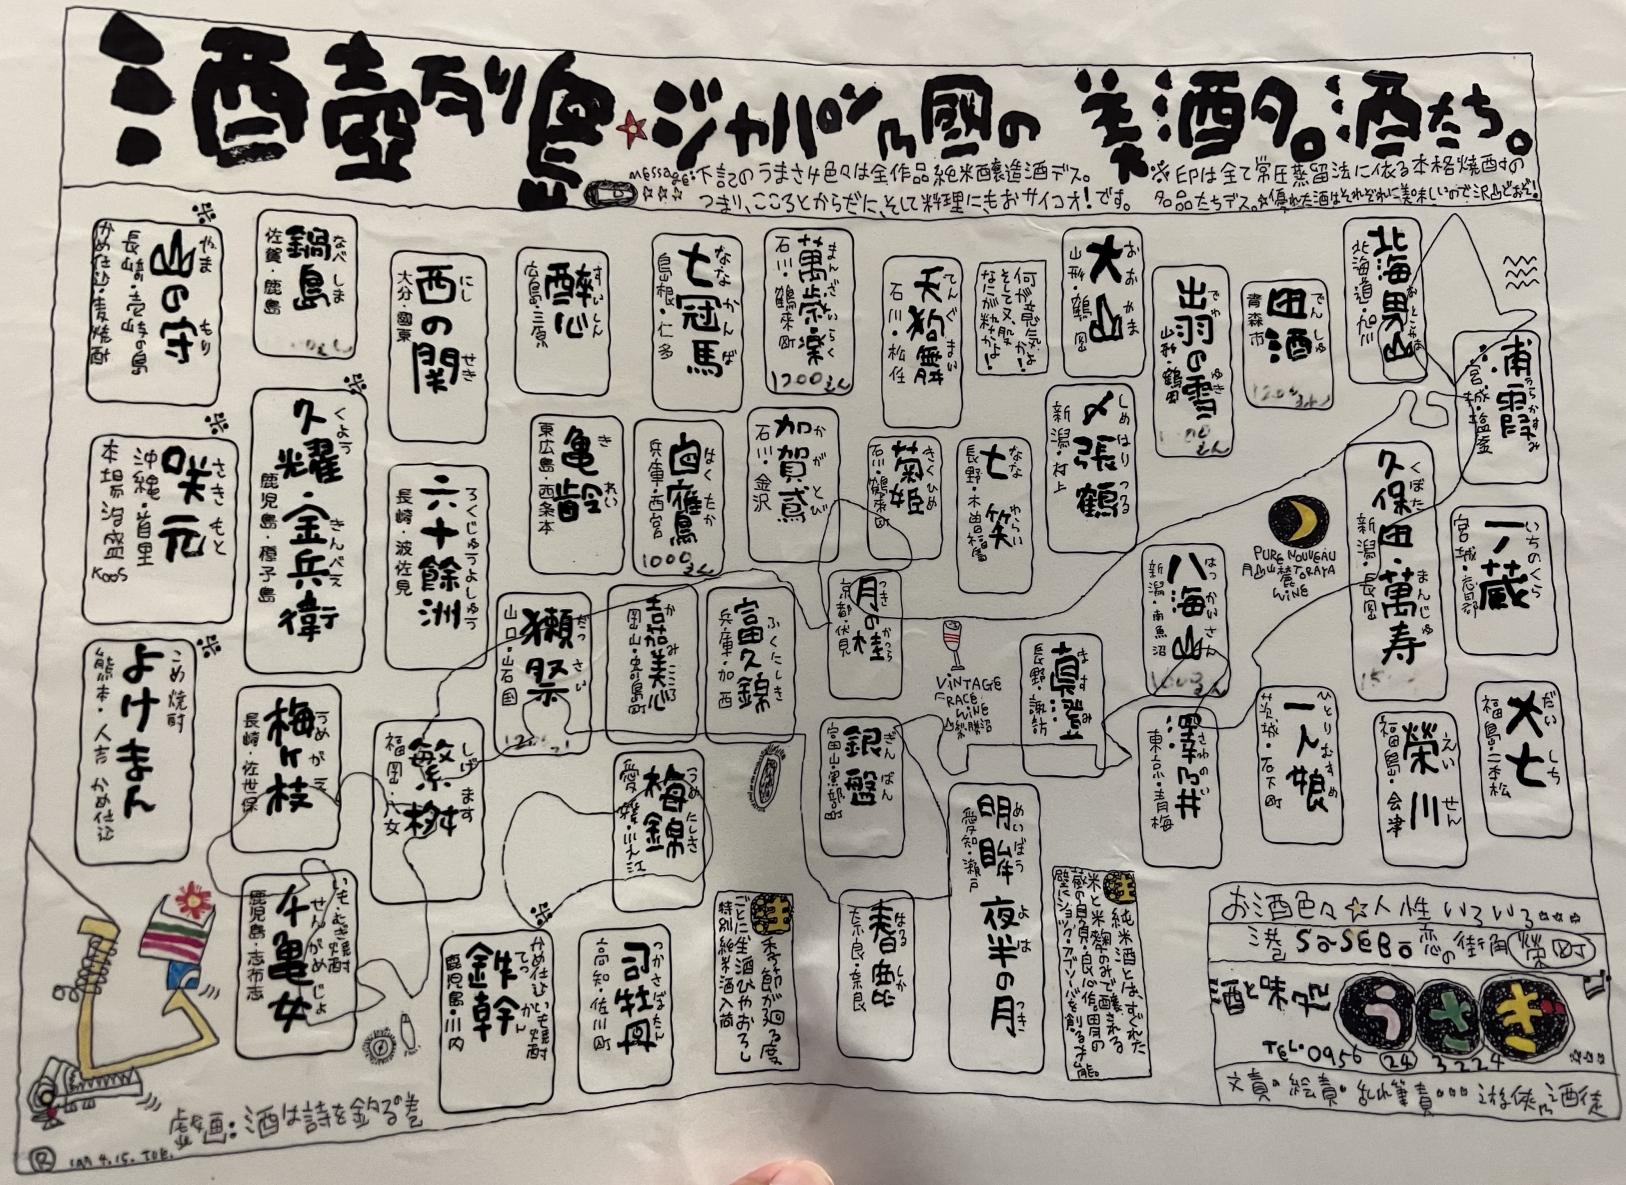 酒壺列島☆ジャパン乃國の美酒多。酒たち。
message:下記のうまさけ色々は全作品純米醸造酒デス。
つまり、こころとからだに、そして料理にもおサイコオ!です。
※EPは全て常圧蒸留法に依る本格焼酎の
名品たちデス。☆優れた酒はそれぞれに美味しいので沢山どおぞ!
北海男山 おとこやま
北海道・旭川
浦霞 うらかすみ
宮城・塩釜
一ノ蔵 いちのくら
宮城・志田郡
大七 だいしち
福島・二本松
田酒 でんしゅ
青森市
1200えん
久保田・萬寿 くぼた まんじゅ
新潟・長岡
榮川 えいせん
福島・会津
出羽の雪 でわ ゆき
山形・鶴岡
八海山 はっかいさん
新潟・南魚沼
一人娘 ひとりむすめ
茨城・石下町
澤乃井 さわのい
東京・青梅
大山 おおやま
山形・鶴岡
〆張鶴 しめはりつる
新潟・村上
真澄 ますみ
長野・諏訪
何が意気かよ!
そして又、股
なにが粋なかよ!
七笑 ななわらい
長野・木曽福島
明眸 夜半の月 めいぼう よは つき
愛知・瀬戸
天狗舞 てんぐまい
石川・松任
菊姫 きくひめ
石川・鶴来町
月の桂 つき かつら
京都・伏見
銀盤 ぎんばん
富山
春鹿 はるしか
奈良・奈良
萬歳楽 まんざいらく
石川・鶴来町
1200えん
加賀鳶 かがとび
石川・金沢
富久錦 ふくにしき
兵庫・加西
七冠馬 ななかんば
島根・仁多
白鷹 はくたか
兵庫・西宮
1000えん
嘉美心 かみこころ
岡山・寄島町
梅錦 うめにしき
愛媛・川之江
司牡丹 つかさぼたん
高知・佐川町
酔心 すいしん
広島・三原
亀齢 きれい
東広島・西条本
獺祭 だっさい
山口・岩国
西の関 にし せき
大分・國東
六十餘洲 ろくじゅうよしゅう
長崎・波佐見
繁桝 しげます
福岡・八女
※ かめ仕込いも焼酎
鉄幹 てっかん
鹿児島・川内
鍋島 なべしま
佐賀・鹿島
※ 久耀・金兵衛 くよう きんべえ
鹿児島・種子島
梅ヶ枝 うめがえ
長崎・佐世保
いも、むぎ焼酎
千亀女 せんがめじょ
鹿児島・志布志
※ 山の守 やま もり
長崎・壱岐の島
かめ仕込・麦焼酎
※ 咲元 さきもと
沖縄・首里
本場泡盛
※ こめ焼酎
よけまん
熊本・人吉 かめ仕込
PURE NOUVEAU
月山山麓 TORAYA
WiNE
ViNTAGE
WiNE
注 季節が廻る度
ごとに生酒ひやおろし
特別純米酒入荷
注 純米酒とは、すぐれた
米と米麹のみで醸される
お酒色々☆人性いろいろ…
港 SaSEBo 恋の街角 榮町
酒と味処 うさぎ
TEL・0956 24 3224
文責・絵責・乱れ筆責…遊侠乃酒徒
戯画:酒は詩を釣る巻
R 4.15.TUE.